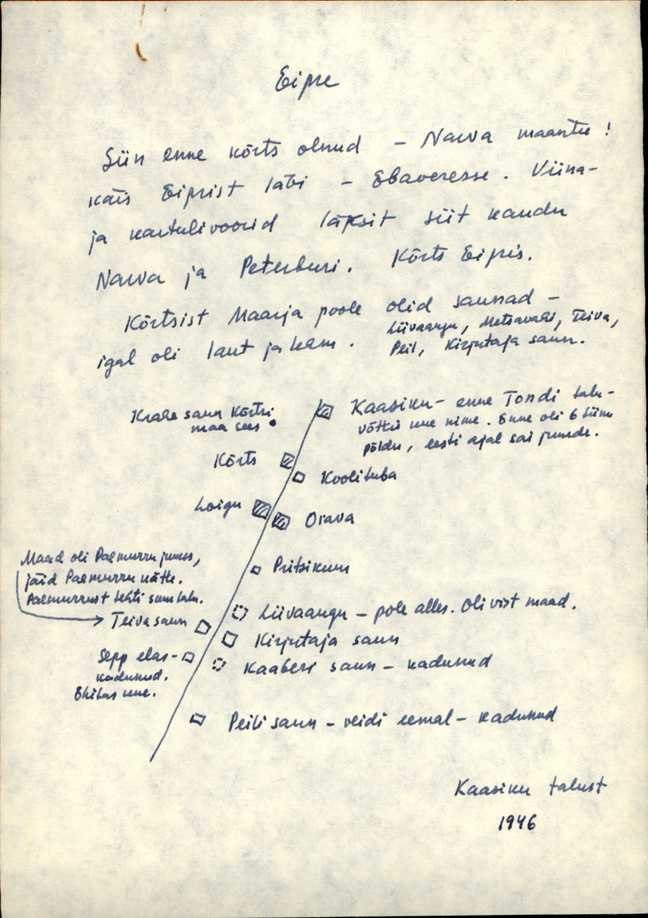 Eipre
Siin enne kõrts olnud – Narva maantee!
käis Eiprist läbi – Ebaveresse. Viina-
ja kartulivoorid läksit siit kaudu
Narva ja Peterburi. Kõrts Eipris.
Kõrtsist Maarja poole olid saunad –
igal oli laut ja kam. Liivaangu, Metsavahi, Teiva,
Peil, Kirjutaja saun.
Krahe saun Kõrtsi
maa sees
Kaasiku – enne Tondi talu –
võttis uue nime. Enne oli 6 tiinu
põldu, eesti ajal sai juurde.
Kõrts
Koolituba
Loigu
Orava
Pritsikuur
Maad oli Paemurru juures,
jäid Paemurru kätte.
Paemurrust tehti suur talu.
Teiva saun
Liivaangu – pole alles. Oli vist maad.
Kirjutaja saun
Sepp elas –
kadunud.
Ehitas uue.
Kaaberi saun – kadunud
Peili saun – veidi eemal – kadunud
Kaasiku talust
1946